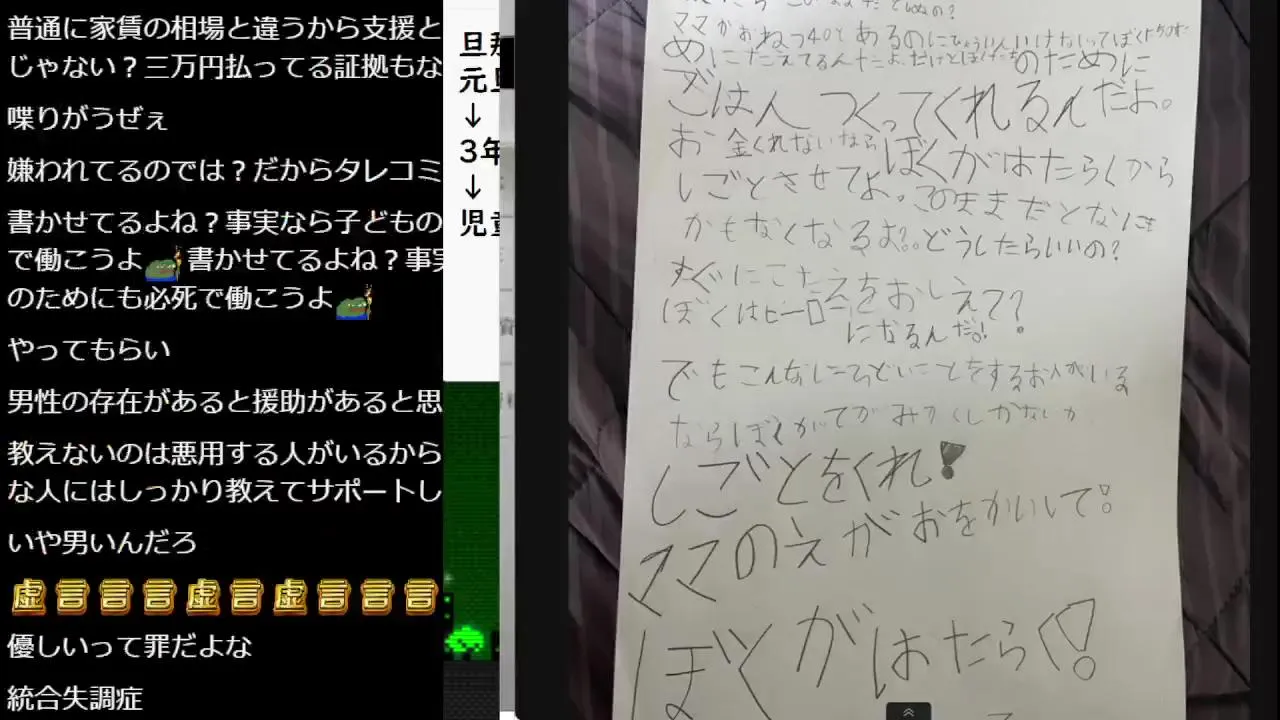 普通に家賃の相場と違うから支援と
じゃない？三万円払ってる証拠もな
喋りがうぜぇ
嫌われてるのでは？だからタレコミ
書かせてるよね？事実なら子どもの
で働こうよ 書かせてるよね？事実
のためにも必死で働こうよ
やってもらい
男性の存在があると援助があると思
教えないのは悪用する人がいるから
な人にはしっかり教えてサポートし
いや男いんだろ
虚言言言虚言虚言言言
優しいって罪だよな
統合失調症
元
↓
3年
↓
ママがおねつ40どあるのにびょういんいけないってぼくたちのた
めにたえてるんだよ。だけどぼくたちのために
ごはんつくってくれるんだよ。
お金くれないならぼくがはたらくから
しごとさせてよ。このままだとなにも
かもなくなるよ?。どうしたらいいの?
すぐにこたえをおしえて?
ぼくはヒーロー
になるんだ!
でもこんなにひどいことをする大人がいる
ならぼくが
しごとをくれ!
ママのえがおをかいして!
ぼくがはたらく!